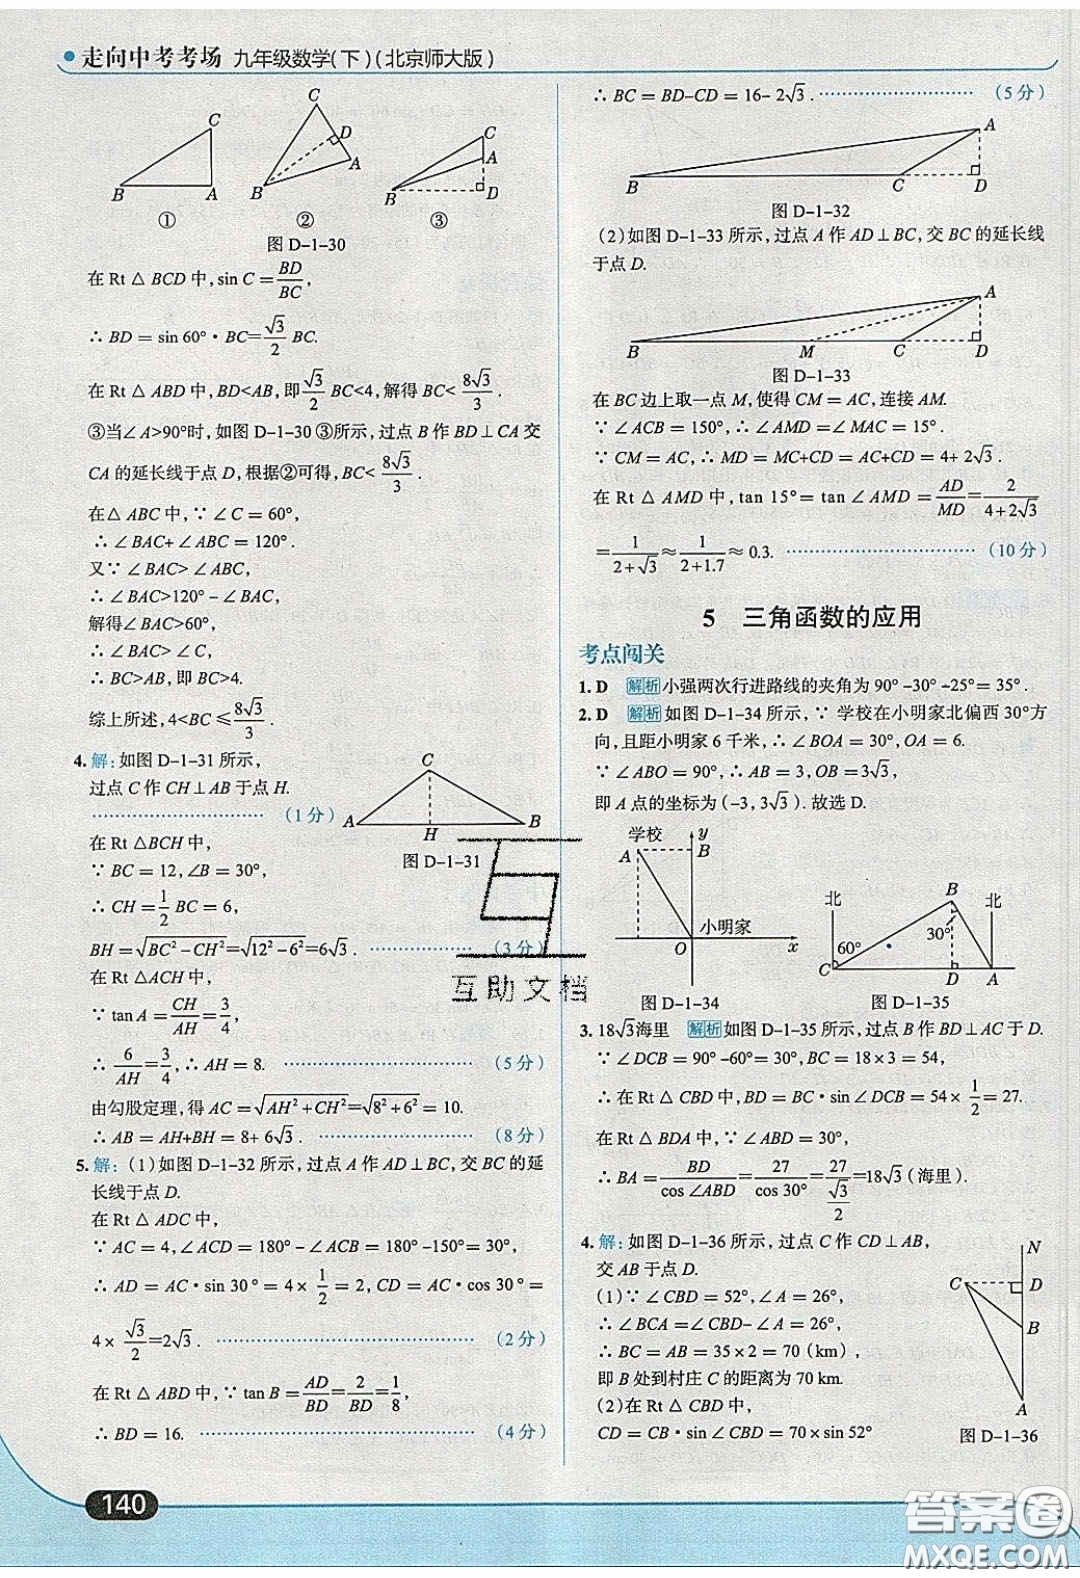 走向中考考场 九年级数学(下)(北京师大版)
C
B A
①
C
D
A
B
②
C
A
B D
③
图 D-1-30
在 Rt △ BCD 中, sin C = BD/BC,
∴ BD = sin 60°· BC = √3/2 BC.
在 Rt △ ABD 中, BD<AB, 即 √3/2 BC<4, 解得 BC< 8√3/3 .
③当∠A>90°时, 如图 D-1-30 ③所示, 过点 B 作 BD⊥CA 交
CA 的延长线于点 D, 根据②可得, BC< 8√3/3 .
在△ ABC 中, ∵ ∠C = 60°,
∴ ∠BAC+ ∠ABC = 120° .
又∵ ∠BAC> ∠ABC,
∴ ∠BAC>120° - ∠BAC,
解得∠BAC>60°,
∴ ∠BAC> ∠C,
∴ BC>AB, 即 BC>4.
综上所述, 4<BC ≤ 8√3/3 .
4. 解: 如图 D-1-31 所示,
过点 C 作 CH⊥AB 于点 H.
(1 分)
C
A H B
图 D-1-31
在 Rt △BCH 中,
∵ BC = 12, ∠B = 30°,
∴ CH = 1/2 BC = 6,
BH = √(BC² - CH²) = √(12² - 6²) = 6√3 . (3 分)
在 Rt △ACH 中,
∵ tan A = CH/AH = 3/4,
∴ 6/AH = 3/4, ∴ AH = 8. (5 分)
由勾股定理, 得 AC = √(AH² + CH²) = √(8² + 6²) = 10.
∴ AB = AH+BH = 8+ 6√3 . (8 分)
5. 解: (1) 如图 D-1-32 所示, 过点 A 作 AD⊥BC, 交 BC 的延
长线于点 D.
在 Rt △ ADC 中,
∵ AC = 4, ∠ACD = 180° - ∠ACB = 180° -150° = 30°,
∴ AD = AC · sin 30 ° = 4 × 1/2 = 2, CD = AC · cos 30 ° =
4× √3/2 = 2√3 . (2 分)
在 Rt △ ABD 中, ∵ tan B = AD/BD = 2/BD = 1/8,
∴ BD = 16. (4 分)
∴ BC = BD-CD = 16- 2√3 . (5 分)
A
B C D
图 D-1-32
(2) 如图 D-1-33 所示, 过点 A 作 AD⊥BC, 交 BC 的延长线
于点 D.
A
B M C D
图 D-1-33
在 BC 边上取一点 M, 使得 CM = AC, 连接 AM.
∵ ∠ACB = 150°, ∴ ∠AMD = ∠MAC = 15° .
∵ CM = AC, ∴ MD = MC+CD = AC+CD = 4+ 2√3 .
在 Rt △ AMD 中, tan 15° = tan ∠AMD = AD/MD = 2/(4+2√3)
= 1/(2+√3) ≈ 1/(2+1.7) ≈ 0.3. (10 分)
5 三角函数的应用
考点闯关
1. D 解析 小强两次行进路线的夹角为 90° -30° -25° = 35° .
2. D 解析 如图 D-1-34 所示, ∵ 学校在小明家北偏西 30°方
向, 且距小明家 6 千米, ∴ ∠BOA = 30°, OA = 6.
∵ ∠ABO = 90°, ∴ AB = 3, OB = 3√3,
即 A 点的坐标为 (-3, 3√3). 故选 D.
学校 y
A B
小明家
O x
图 D-1-34
北 B 北
30°
60°
C D A
图 D-1-35
3. 18√3海里 解析 如图 D-1-35 所示, 过点 B 作 BD⊥AC 于 D.
∵ ∠DCB = 90° -60° = 30°, BC = 18×3 = 54,
∴ 在 Rt △ CBD 中, BD = BC · sin ∠DCB = 54× 1/2 = 27.
在 Rt △ BDA 中, ∵ ∠ABD = 30°,
∴ BA = BD/cos ∠ABD = 27/cos 30° = 27/(√3/2) = 18√3 (海里).
4. 解: 如图 D-1-36 所示, 过点 C 作 CD⊥AB,
交 AB 于点 D.
(1) ∵ ∠CBD = 52°, ∠A = 26°,
∴ ∠BCA = ∠CBD- ∠A = 26°,
∴ BC = AB = 35×2 = 70 (km),
即 B 处到村庄 C 的距离为 70 km.
(2) 在 Rt △ CBD 中,
CD = CB · sin ∠CBD = 70×sin 52°
N
C D
B
A
图 D-1-36
互助文档
140
答案圈
MXQE.COM